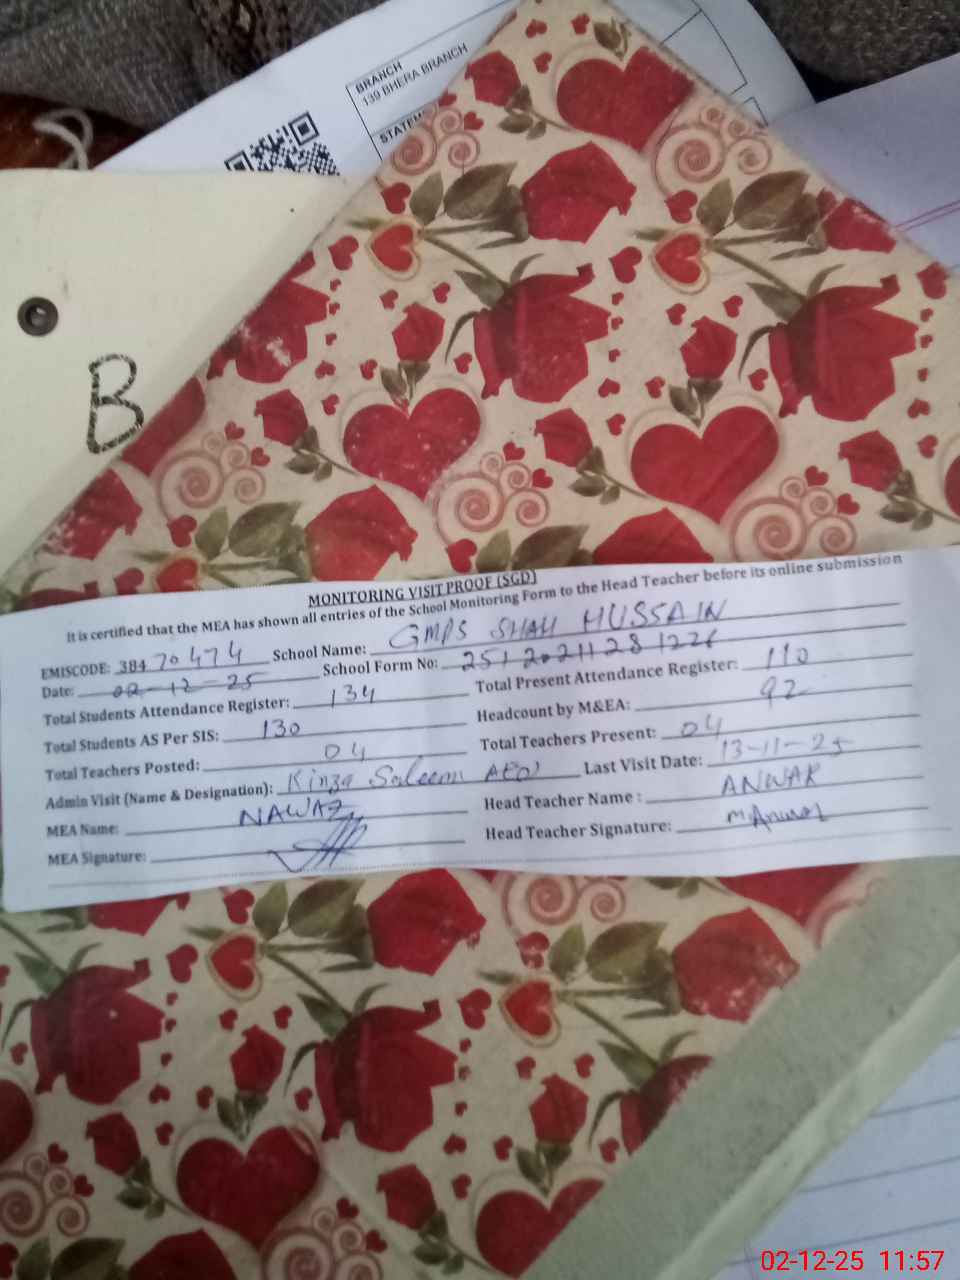 BRANCH
139 BHERA BRANCH
B
MONITORING VISIT PROOF (SGD)
It is certified that the MEA has shown all entries of the School Monitoring Form to the Head Teacher before its online submission
EMISCODE: 38470474 School Name: GMPS SHAH HUSSAIN
Date: 02-12-25 School Form No: 25120211281226
Total Students Attendance Register: 134 Total Present Attendance Register: 110
Total Students AS Per SIS: 130 Headcount by M&EA: 92
Total Teachers Posted: 04 Total Teachers Present: 04
Admin Visit (Name & Designation): Kinza Saleem AEO Last Visit Date: 13-11-25
MEA Name: NAWAZ Head Teacher Name : ANWAR
MEA Signature: Head Teacher Signature: M Anwar
02-12-25 11:57